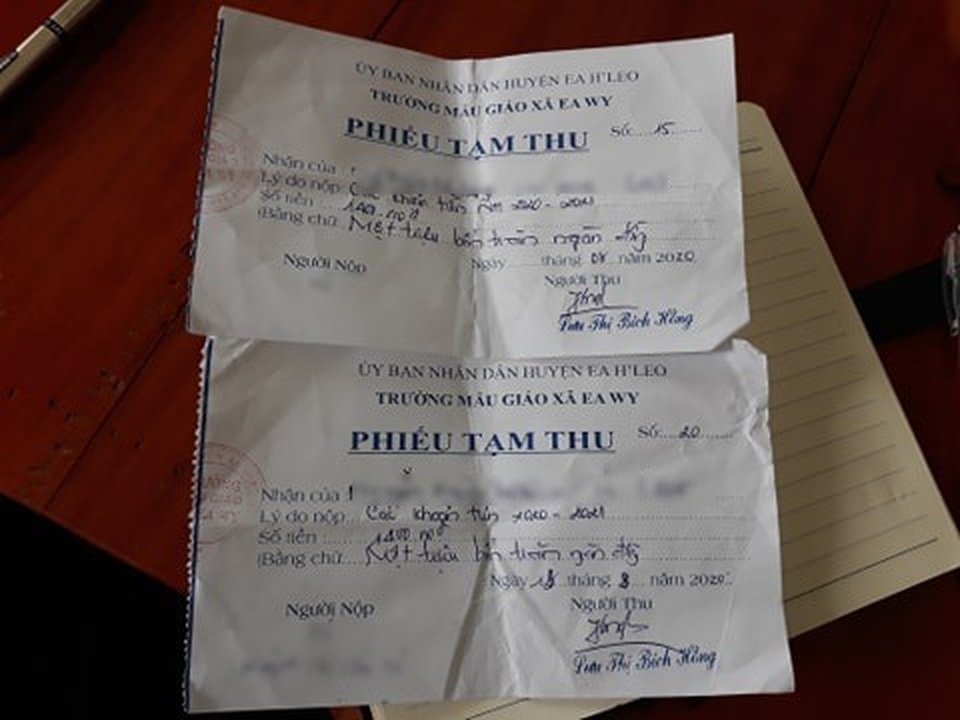 ỦY BAN NHÂN DÂN HUYỆN EA H'LEO
TRƯỜNG MẪU GIÁO XÃ EA WY
PHIẾU TẠM THU
Số: 15
Nhận của :
Lý do nộp: Các khoản tiền năm 2020 - 2021
Số tiền : 1400.000đ
(Bằng chữ: Một triệu bốn trăm ngàn đồng
Ngày tháng 08 năm 2020
Người Nộp Người Thu
Lưu Thị Bích Hồng
ỦY BAN NHÂN DÂN HUYỆN EA H'LEO
TRƯỜNG MẪU GIÁO XÃ EA WY
PHIẾU TẠM THU
Số: 20
Nhận của :
Lý do nộp: Các khoản tiền 2020 - 2021
Số tiền : 1400.000
(Bằng chữ: Một triệu bốn trăm ngàn đồng
Ngày 18 tháng 8 năm 2020
Người Nộp Người Thu
Lưu Thị Bích Hồng